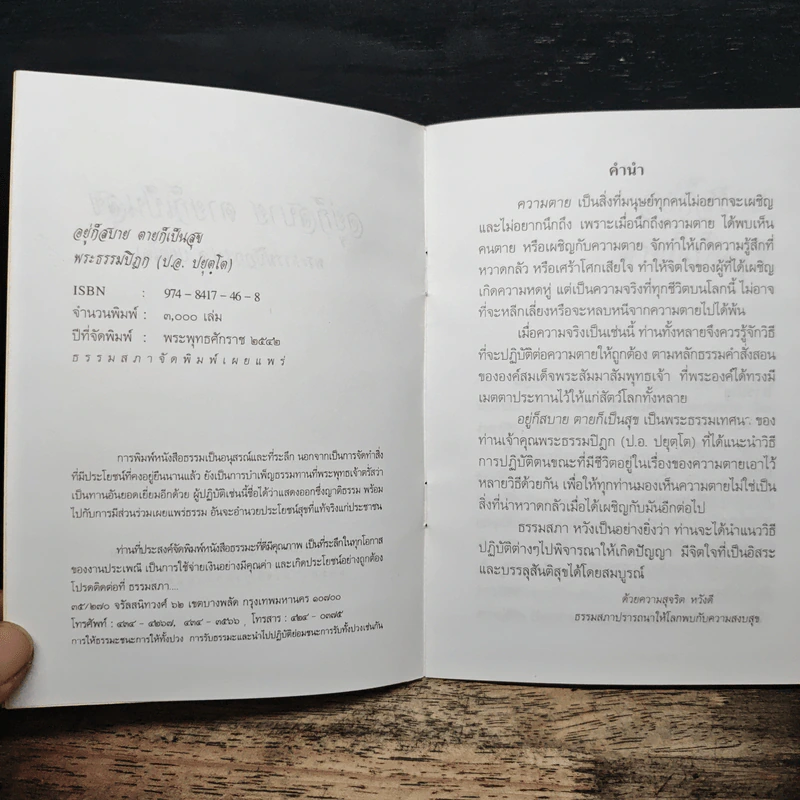 อยู่ก็สบาย ตายก็เป็นสุข
พระธรรมปิฎก (ป.อ. ปยุตฺโต)
ISBN : 974 - 8417 - 46 - 8
จำนวนพิมพ์ : ๓,๐๐๐ เล่ม
ปีที่จัดพิมพ์ : พระพุทธศักราช ๒๕๔๒
ธรรมสภาจัดพิมพ์เผยแพร่
การพิมพ์หนังสือธรรมเป็นอนุสรณ์และที่ระลึก นอกจากเป็นการจัดทำสิ่ง
ที่มีประโยชน์ที่คงอยู่ยืนนานแล้ว ยังเป็นการบำเพ็ญธรรมทานที่พระพุทธเจ้าตรัสว่า
เป็นทานอันยอดเยี่ยมอีกด้วย ผู้ปฏิบัติเช่นนี้ชื่อได้ว่าแสดงออกซึ่งญาติธรรม พร้อม
ไปกับการมีส่วนร่วมเผยแพร่ธรรม อันจะอำนวยประโยชน์สุขที่แท้จริงแก่ประชาชน
ท่านที่ประสงค์จัดพิมพ์หนังสือธรรมะที่ดีมีคุณภาพ เป็นที่ระลึกในทุกโอกาส
ของงานประเพณี เป็นการใช้จ่ายเงินอย่างมีคุณค่า และเกิดประโยชน์อย่างถูกต้อง
โปรดติดต่อที่ ธรรมสภา...
๓๕/๒๗๐ จรัลสนิทวงศ์ ๖๒ เขตบางพลัด กรุงเทพมหานคร ๑๐๗๐๐
โทรศัพท์ : ๔๓๔ - ๔๒๖๗, ๔๓๔ - ๓๕๖๖ , โทรสาร : ๔๒๔ - ๐๓๗๕
การให้ธรรมะชนะการให้ทั้งปวง การรับธรรมะและนำไปปฏิบัติย่อมชนะการรับทั้งปวงเช่นกัน
คำนำ
ความตาย เป็นสิ่งที่มนุษย์ทุกคนไม่อยากจะเผชิญ
และไม่อยากนึกถึง เพราะเมื่อนึกถึงความตาย ได้พบเห็น
คนตาย หรือเผชิญกับความตาย จักทำให้เกิดความรู้สึกที่
หวาดกลัว หรือเศร้าโศกเสียใจ ทำให้จิตใจของผู้ที่ได้เผชิญ
เกิดความหดหู่ แต่เป็นความจริงที่ทุกชีวิตบนโลกนี้ ไม่อาจ
ที่จะหลีกเลี่ยงหรือจะหลบหนีจากความตายไปได้พ้น
เมื่อความจริงเป็นเช่นนี้ ท่านทั้งหลายจึงควรรู้จักวิธี
ที่จะปฏิบัติต่อความตายให้ถูกต้อง ตามหลักธรรมคำสั่งสอน
ขององค์สมเด็จพระสัมมาสัมพุทธเจ้า ที่พระองค์ได้ทรงมี
เมตตาประทานไว้ให้แก่สัตว์โลกทั้งหลาย
อยู่ก็สบาย ตายก็เป็นสุข เป็นพระธรรมเทศนา ของ
ท่านเจ้าคุณพระธรรมปิฎก (ป.อ. ปยุตฺโต) ที่ได้แนะนำวิธี
การปฏิบัติตนขณะที่มีชีวิตอยู่ในเรื่องของความตายเอาไว้
หลายวิธีด้วยกัน เพื่อให้ทุกท่านมองเห็นความตายไม่ใช่เป็น
สิ่งที่น่าหวาดกลัวเมื่อได้เผชิญกับมันอีกต่อไป
ธรรมสภา หวังเป็นอย่างยิ่งว่า ท่านจะได้นำแนววิธี
ปฏิบัติต่างๆไปพิจารณาให้เกิดปัญญา มีจิตใจที่เป็นอิสระ
และบรรลุสันติสุขได้โดยสมบูรณ์
ด้วยความสุจริต หวังดี
ธรรมสภาปรารถนาให้โลกพบกับความสงบสุข